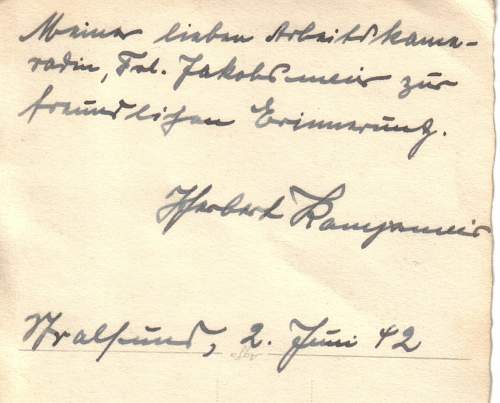 Meiner lieben Arbeitskame-
radin, Frl. Jakobsmeier zur
freundlichen Erinnerung.
Herbert Kampsmeier
Stralsund, 2. Juni 42